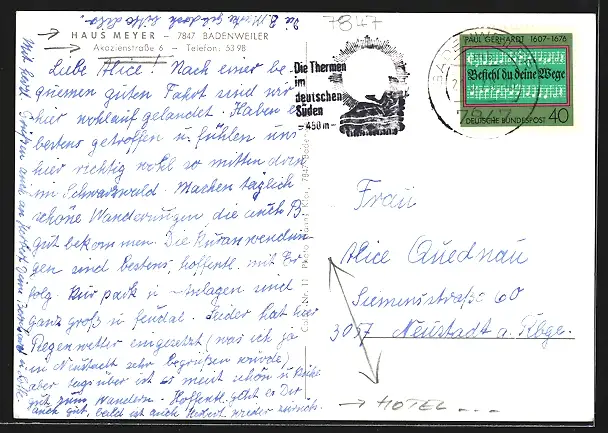 7847
HAUS MEYER – 7847 BADENWEILER
Akazienstraße 6 – Telefon: 53 98
Liebe Alice! Nach einer be-
quemen guten Fahrt sind wir
hier wohlauf gelandet. Haben es
bestens getroffen u. fühlen uns
hier richtig wohl so mitten drin
im Schwarzwald. Machen täglich
schöne Wanderungen die auch B.
gut bekommen. Die Kuranwendun-
gen sind bestens, hoffentl. mit Er-
folg. Kurpark u -Anlagen sind
ganz groß u. feudal. Leider hat hier
Regenwetter eingesetzt (was ich ja
in Neustadt sehr begrüßen würde)
aber tags über ist es meist schön u.
gut zum Wandern. Hoffentl. geht es Dir
auch gut, bald ist auch wieder zurück.
Mit herzl. Grüßen auch an
Die Thermen
im
deutschen
Süden
– 450 m –
PAUL GERHARDT 1607-1676
Befiehl du deine Wege
DEUTSCHE BUNDESPOST 40
7847
Frau
Alice Quednau
Siemensstraße 60
3057 Neustadt a. Rbge.
→ HOTEL ...